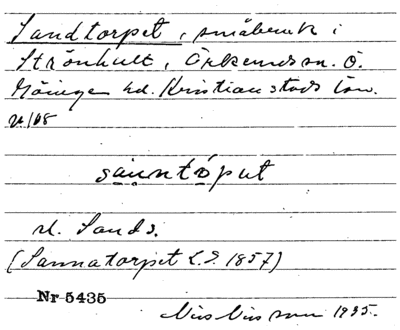 Sandtorpet, småbruk i
Strönhult, Örkeneds sn. Ö.
Göinge hd. Kristianstads län.
sanntóput
d. Sands.
(Sannatorpet L.S. 1857)
Nr 5435
Nils Nilsson 1935.